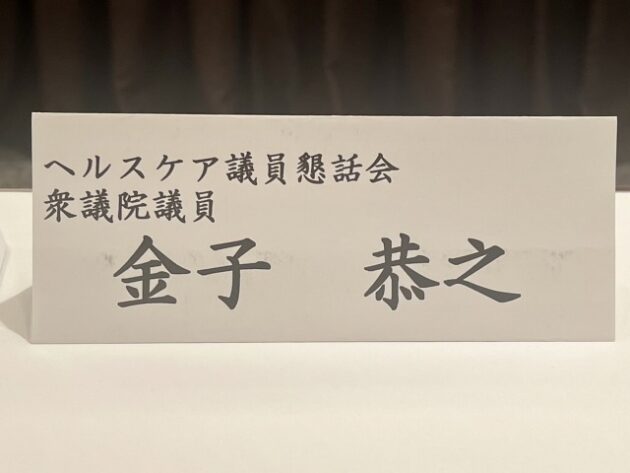 ヘルスケア議員懇話会
衆議院議員
金子 恭之